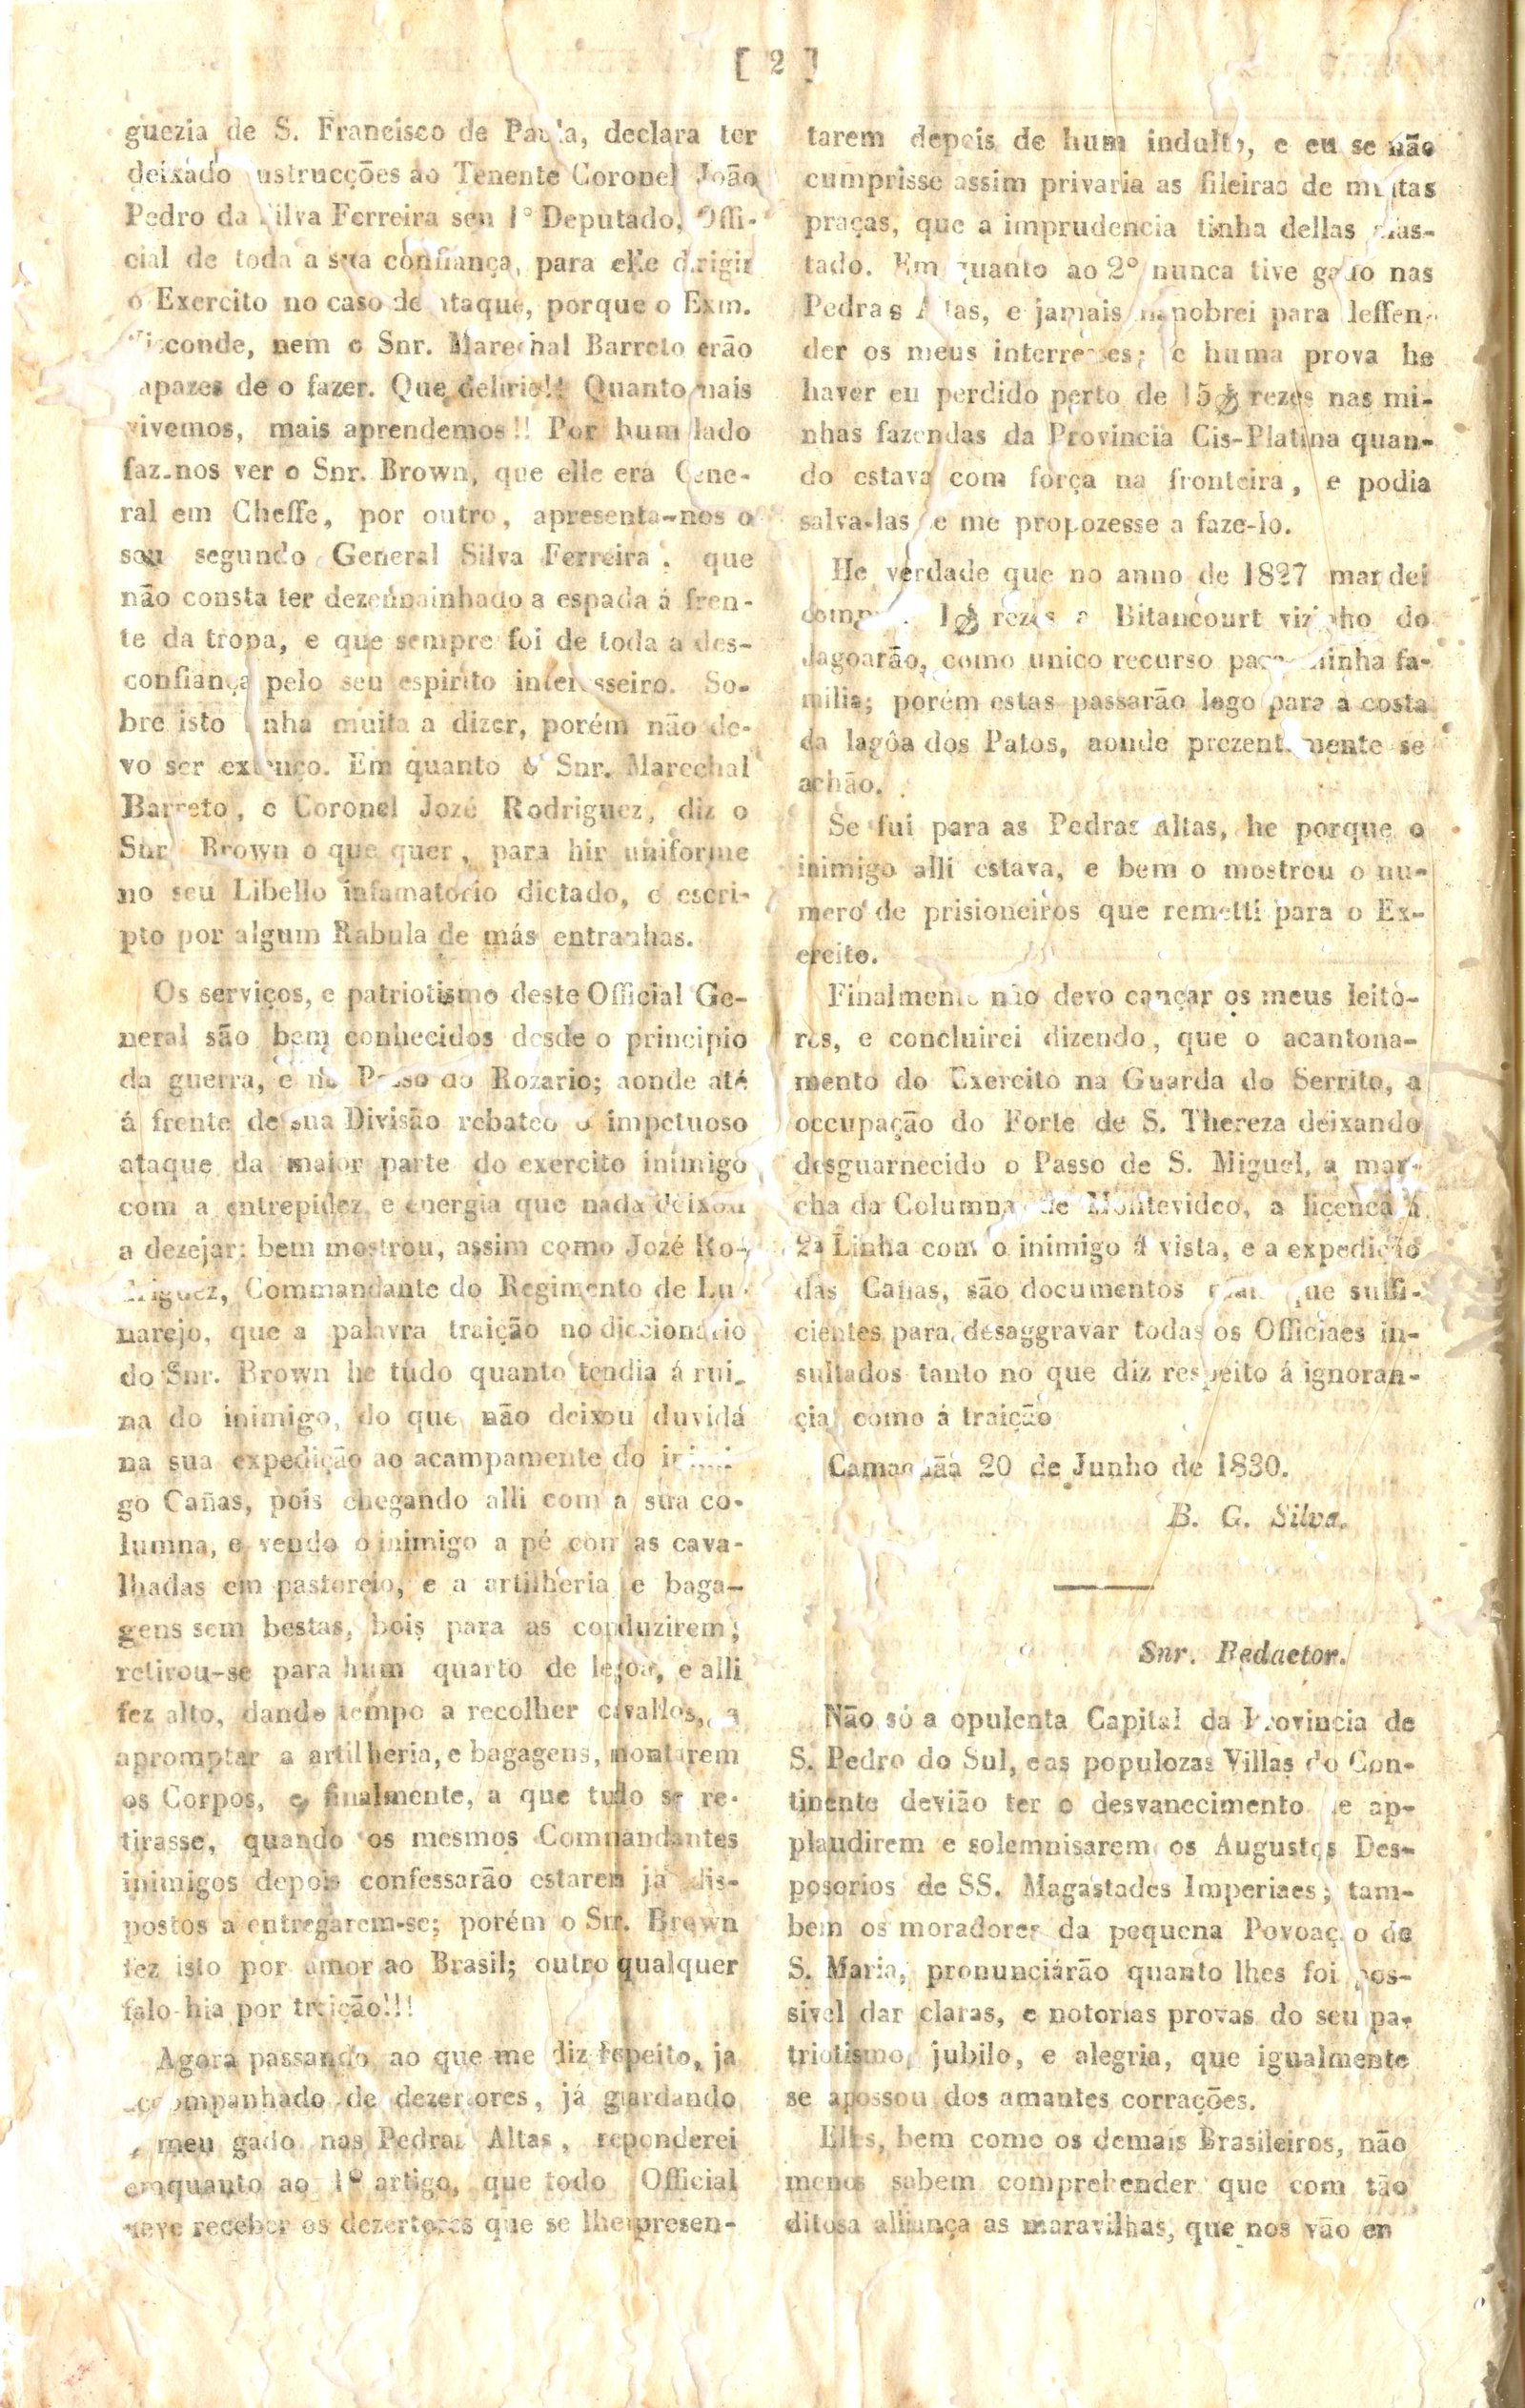 [ 2 ]
guezia de S. Francisco de Paula, declara ter
deixado ustrucções ao Tenente Coronel João
Pedro da Silva Ferreira seu 1º Deputado, Offi-
cial de toda a sua confiança, para elle dirigir
o Exercito no caso de ataque, porque o Exm.
Visconde, nem o Snr. Marechal Barreto erão
apazes de o fazer. Que delirio!! Quanto mais
vivemos, mais aprendemos!! Por hum lado
faz-nos ver o Snr. Brown, que elle era Gene-
ral em Cheffe, por outro, apresenta-nos o
seu segundo General Silva Ferreira, que
não consta ter dezembainhado a espada á fren-
te da tropa, e que sempre foi de toda a des-
confiança pelo seu espirito interesseiro. So-
bre isto tinha muita a dizer, porém não de-
vo ser extenço. Em quanto o Snr. Marechal
Barreto, e Coronel Jozé Rodriguez, diz o
Snr Brown o que quer, para hir uniforme
no seu Libello infamatorio dictado, e escri-
pto por algum Rabula de más entranhas.
Os serviços, e patriotismo deste Official Ge-
neral são bem conhecidos desde o principio
da guerra, e no Passo do Rozario; aonde até
á frente de sua Divisão rebateo o impetuoso
ataque da maior parte do exercito inimigo
com a entrepidez e energia que nada deixou
a dezejar: bem mostrou, assim como Jozé Ro-
driguez, Commandante do Regimento de Lu-
narejo, que a palavra traição no diccionario
do Snr. Brown he tudo quanto tendia á rui-
na do inimigo, do que não deixou duvidá
na sua expedição ao acampamente do inimi-
go Cañas, pois chegando alli com a sua co-
lumna, e vendo o inimigo a pé com as cava-
lhadas em pastoreio, e a artilheria e baga-
gens sem bestas, bois para as conduzirem;
retirou-se para hum quarto de legoa, e alli
fez alto, dando tempo a recolher cavallos, a
apromptar a artilheria, e bagagens, montarem
os Corpos, e finalmente, a que tudo se re-
tirasse, quando os mesmos Commandantes
inimigos depois confessarão estarem já dis-
postos a entregarem-se; porém o Snr. Brown
fez isto por amor ao Brasil; outro qualquer
falo-hia por traição!!!
Agora passando ao que me diz repeito, ja
acompanhado de dezertores, já guardando
meu gado nas Pedras Altas, reponderei
emquanto ao 1º artigo, que todo Official
deve receber os dezertores que se lhe presen-
tarem depois de hum indulto, e eu se não
cumprisse assim privaria as fileiras de muitas
praças, que a imprudencia tinha dellas afas-
tado. Em quanto ao 2º nunca tive gado nas
Pedras Altas, e jamais manobrei para deffen-
der os meus interresses; e huma prova he
haver eu perdido perto de 15$ rezes nas mi-
nhas fazendas da Provincia Cis-Platina quan-
do estava com força na fronteira, e podia
salva-las se me propozesse a faze-lo.
He verdade que no anno de 1827 mandei
comprar 1$ rezes a Bitancourt vizinho do
Jagoarão, como unico recurso para minha fa-
milia; porém estas passarão logo para a costa
da lagôa dos Patos, aonde prezentemente se
achão.
Se fui para as Pedras Altas, he porque o
inimigo alli estava, e bem o mostrou o nu-
mero de prisioneiros que remetti para o Ex-
ercito.
Finalmente não devo cançar os meus leito-
res, e concluirei dizendo, que o acantona-
mento do Exercito na Guarda do Serrito, a
occupação do Forte de S. Thereza deixando
desguarnecido o Passo de S. Miguel, a mar-
cha da Columna de Montevideo, a liçença á
2ª Linha com o inimigo á vista, e a expedição
das Cañas, são documentos mais que suffi-
cientes para desaggravar todas os Officiaes in-
sultados tanto no que diz respeito á ignoran-
çia como á traição
Camaquãa 20 de Junho de 1830.
B. G. Silva.
Snr. Redactor.
Não só a opulenta Capital da Provincia de
S. Pedro do Sul, e as populozas Villas do Con-
tinente devião ter o desvanecimento de ap-
plaudirem e solemnisarem os Augustos Des-
posorios de SS. Magastades Imperiaes; tam-
bem os moradores da pequena Povoação de
S. Maria, pronunciárão quanto lhes foi pos-
sivel dar claras, e notorias provas do seu pa-
triotismo, jubilo, e alegria, que igualmente
se apossou dos amantes corrações.
Elles, bem como os demais Brasileiros, não
menos sabem comprehender que com tão
ditosa alliança as maravilhas, que nos vão en